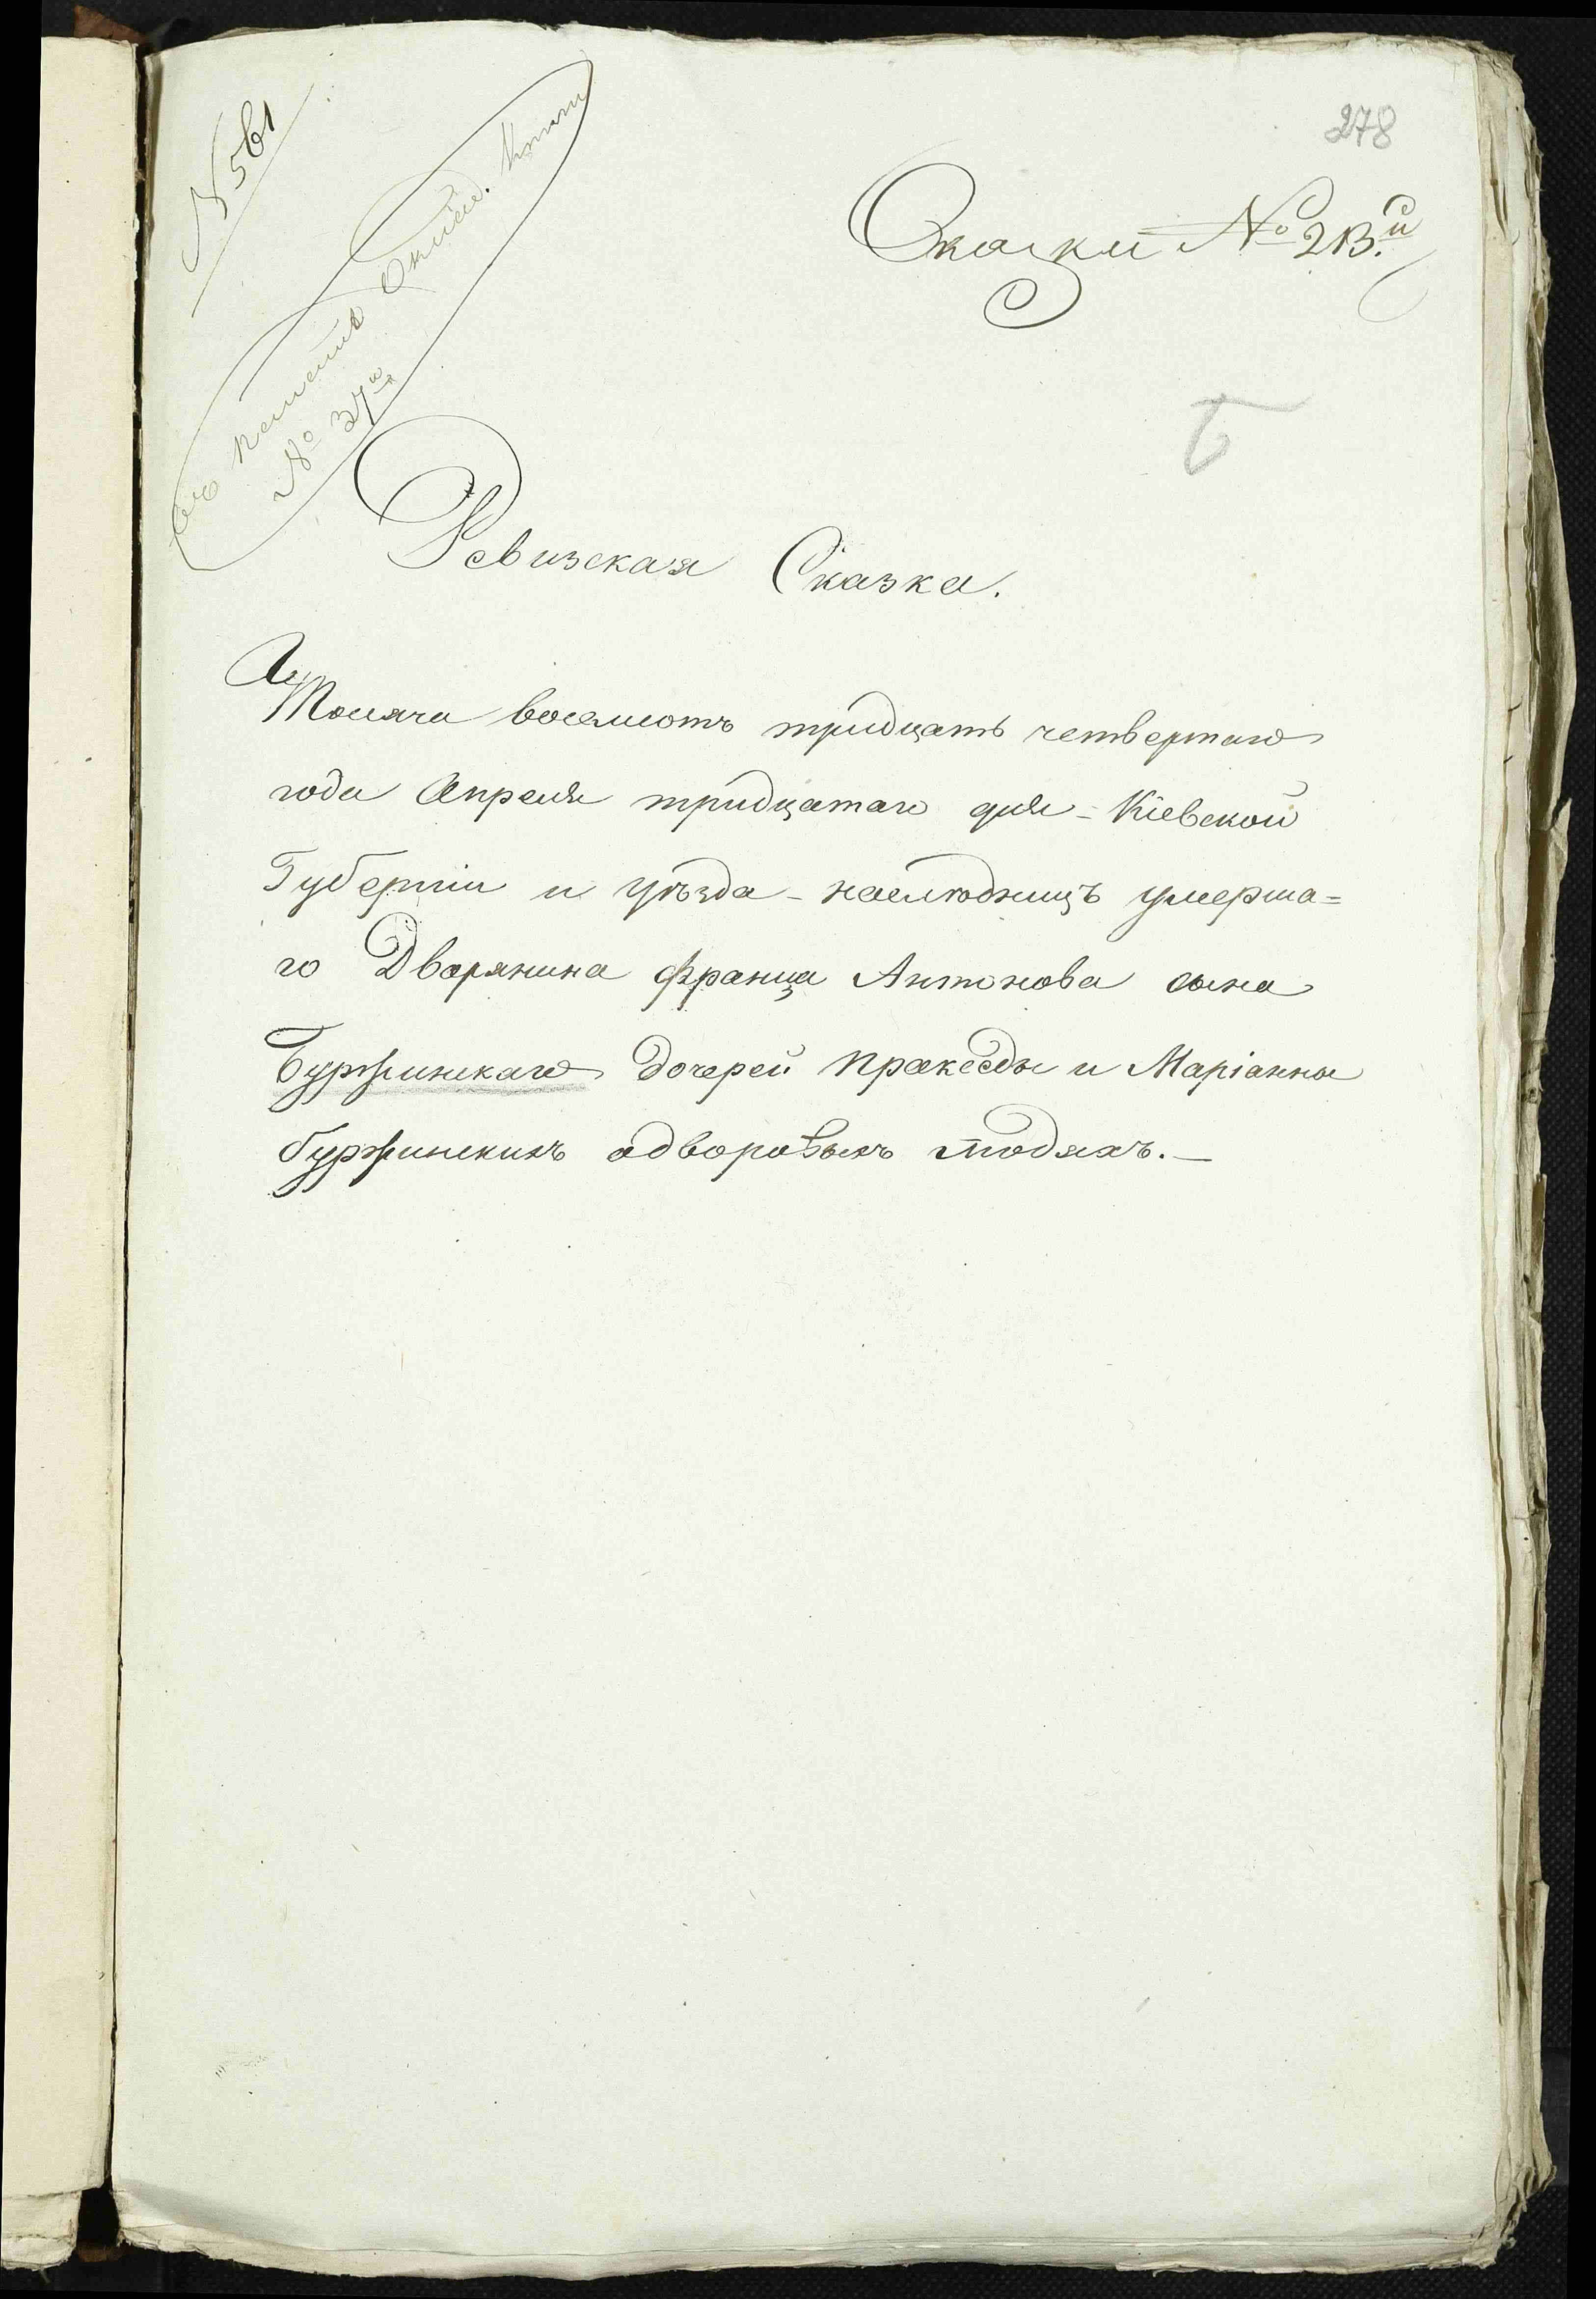 № 561
№ 37го
278
Сказки № 213.й
Б
Ревизская Сказка.
Тысяча восемсотъ тридцать четвертаго
года Апреля тридцатаго дня - Кіевской
Губерніи и уѣзда - наслюдницъ умерша=
го Дворянина Франца Антонова сына
Буржинскаго дочерей Пракседы и Маріанны
буржинскихъ одворовыхъ людяхъ. —